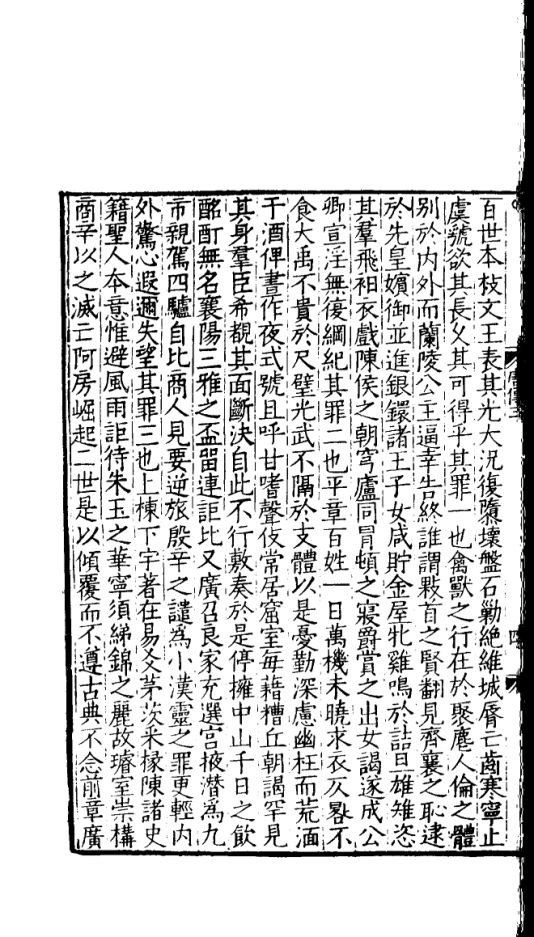 百世本枝文王表其光大況復隳壞盤石勦絕維城脣亡齒寒寧止
虞虢欲其長乆其可得乎其罪一也禽獸之行在於聚麀人倫之體
別於內外而蘭陵公主逼幸告終誰謂㪇首之賢翻見齊襄之恥逮
於先皇嬪御並進銀鐶諸王子女咸貯金屋牝雞鳴於詰旦雄雉恣
其羣飛衵衣戲陳侯之朝穹廬同冒頓之寢爵賞之出女謁遂成公
卿宣淫無復綱紀其罪二也平章百姓一日萬機未曉求衣仄晷不
食大禹不貴於尺璧光武不隔於支體以是憂勤深慮幽枉而荒湎
于酒俾晝作夜式號且呼甘嗜聲伎常居窟室每藉糟丘朝謁罕見
其身羣臣希覩其面斷決自此不行敷奏於是停擁中山千日之飲
酩酊無名襄陽三雅之盃留連詎比又廣召良家充選宮掖潛為九
市親駕四驢自比商人見要逆旅殷辛之譴為小漢靈之罪更輕內
外驚心遐邇失望其罪三也上棟下宇著在易爻茅茨采椽陳諸史
籍聖人本意惟避風雨詎待朱玉之華寧須綈錦之麗故璿室崇構
商辛以之滅亡阿房崛起二世是以傾覆而不遵古典不念前章廣